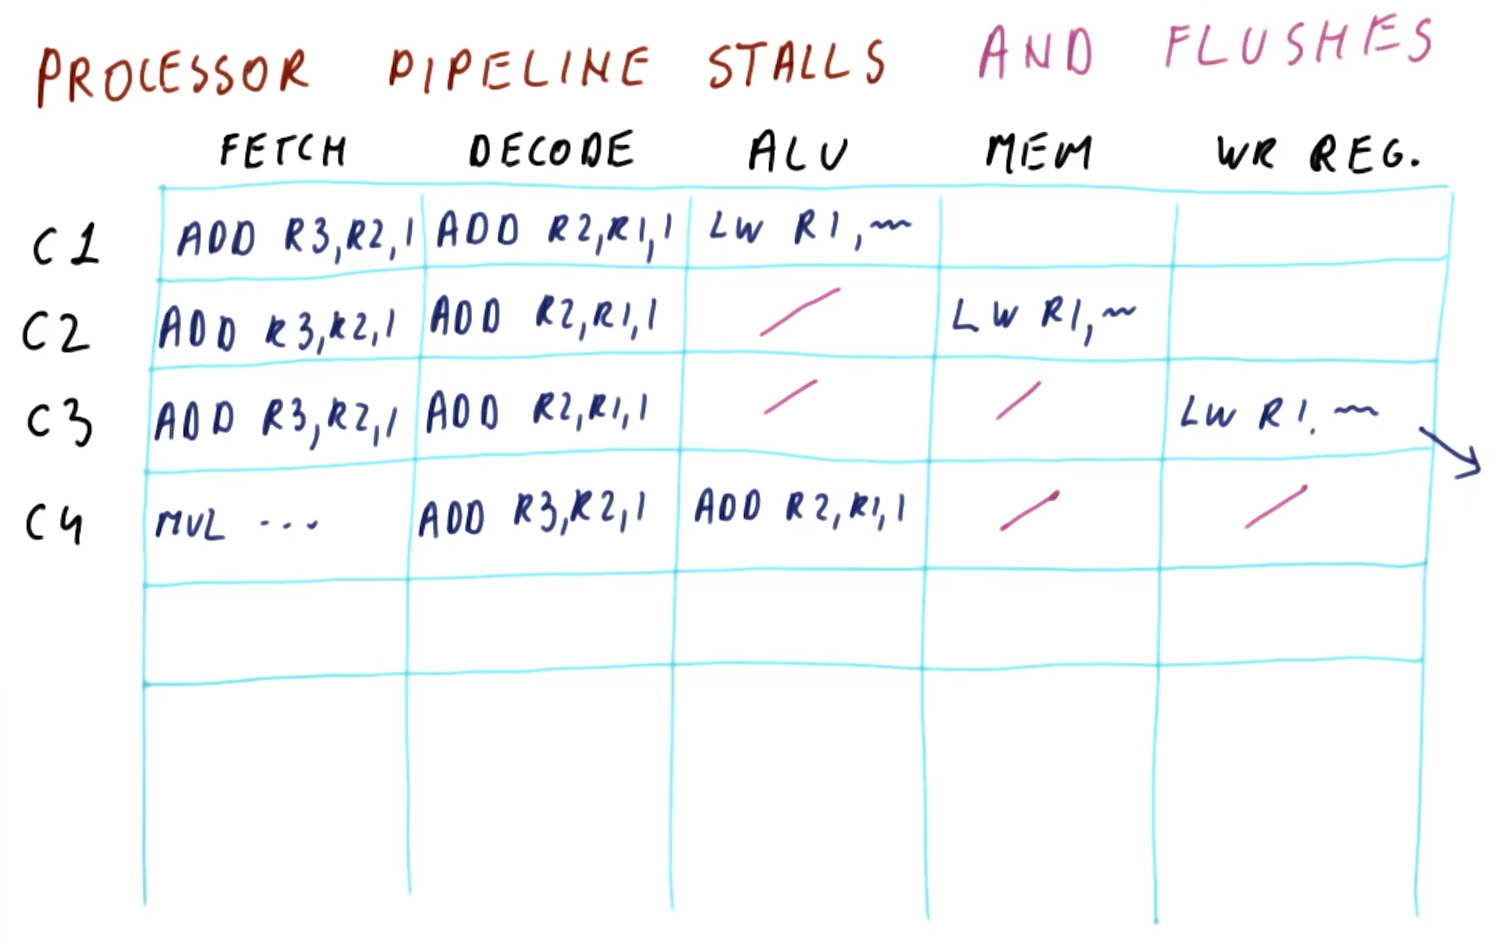 PROCESSOR PIPELINE STALLS AND FLUSHES
FETCH DECODE ALU MEM WR REG.
C1 ADD R3,R2,1 ADD R2,R1,1 LW R1,~
C2 ADD R3,R2,1 ADD R2,R1,1 / LW R1,~
C3 ADD R3,R2,1 ADD R2,R1,1 / / LW R1,~
C4 MUL ... ADD R3,R2,1 ADD R2,R1,1 / /